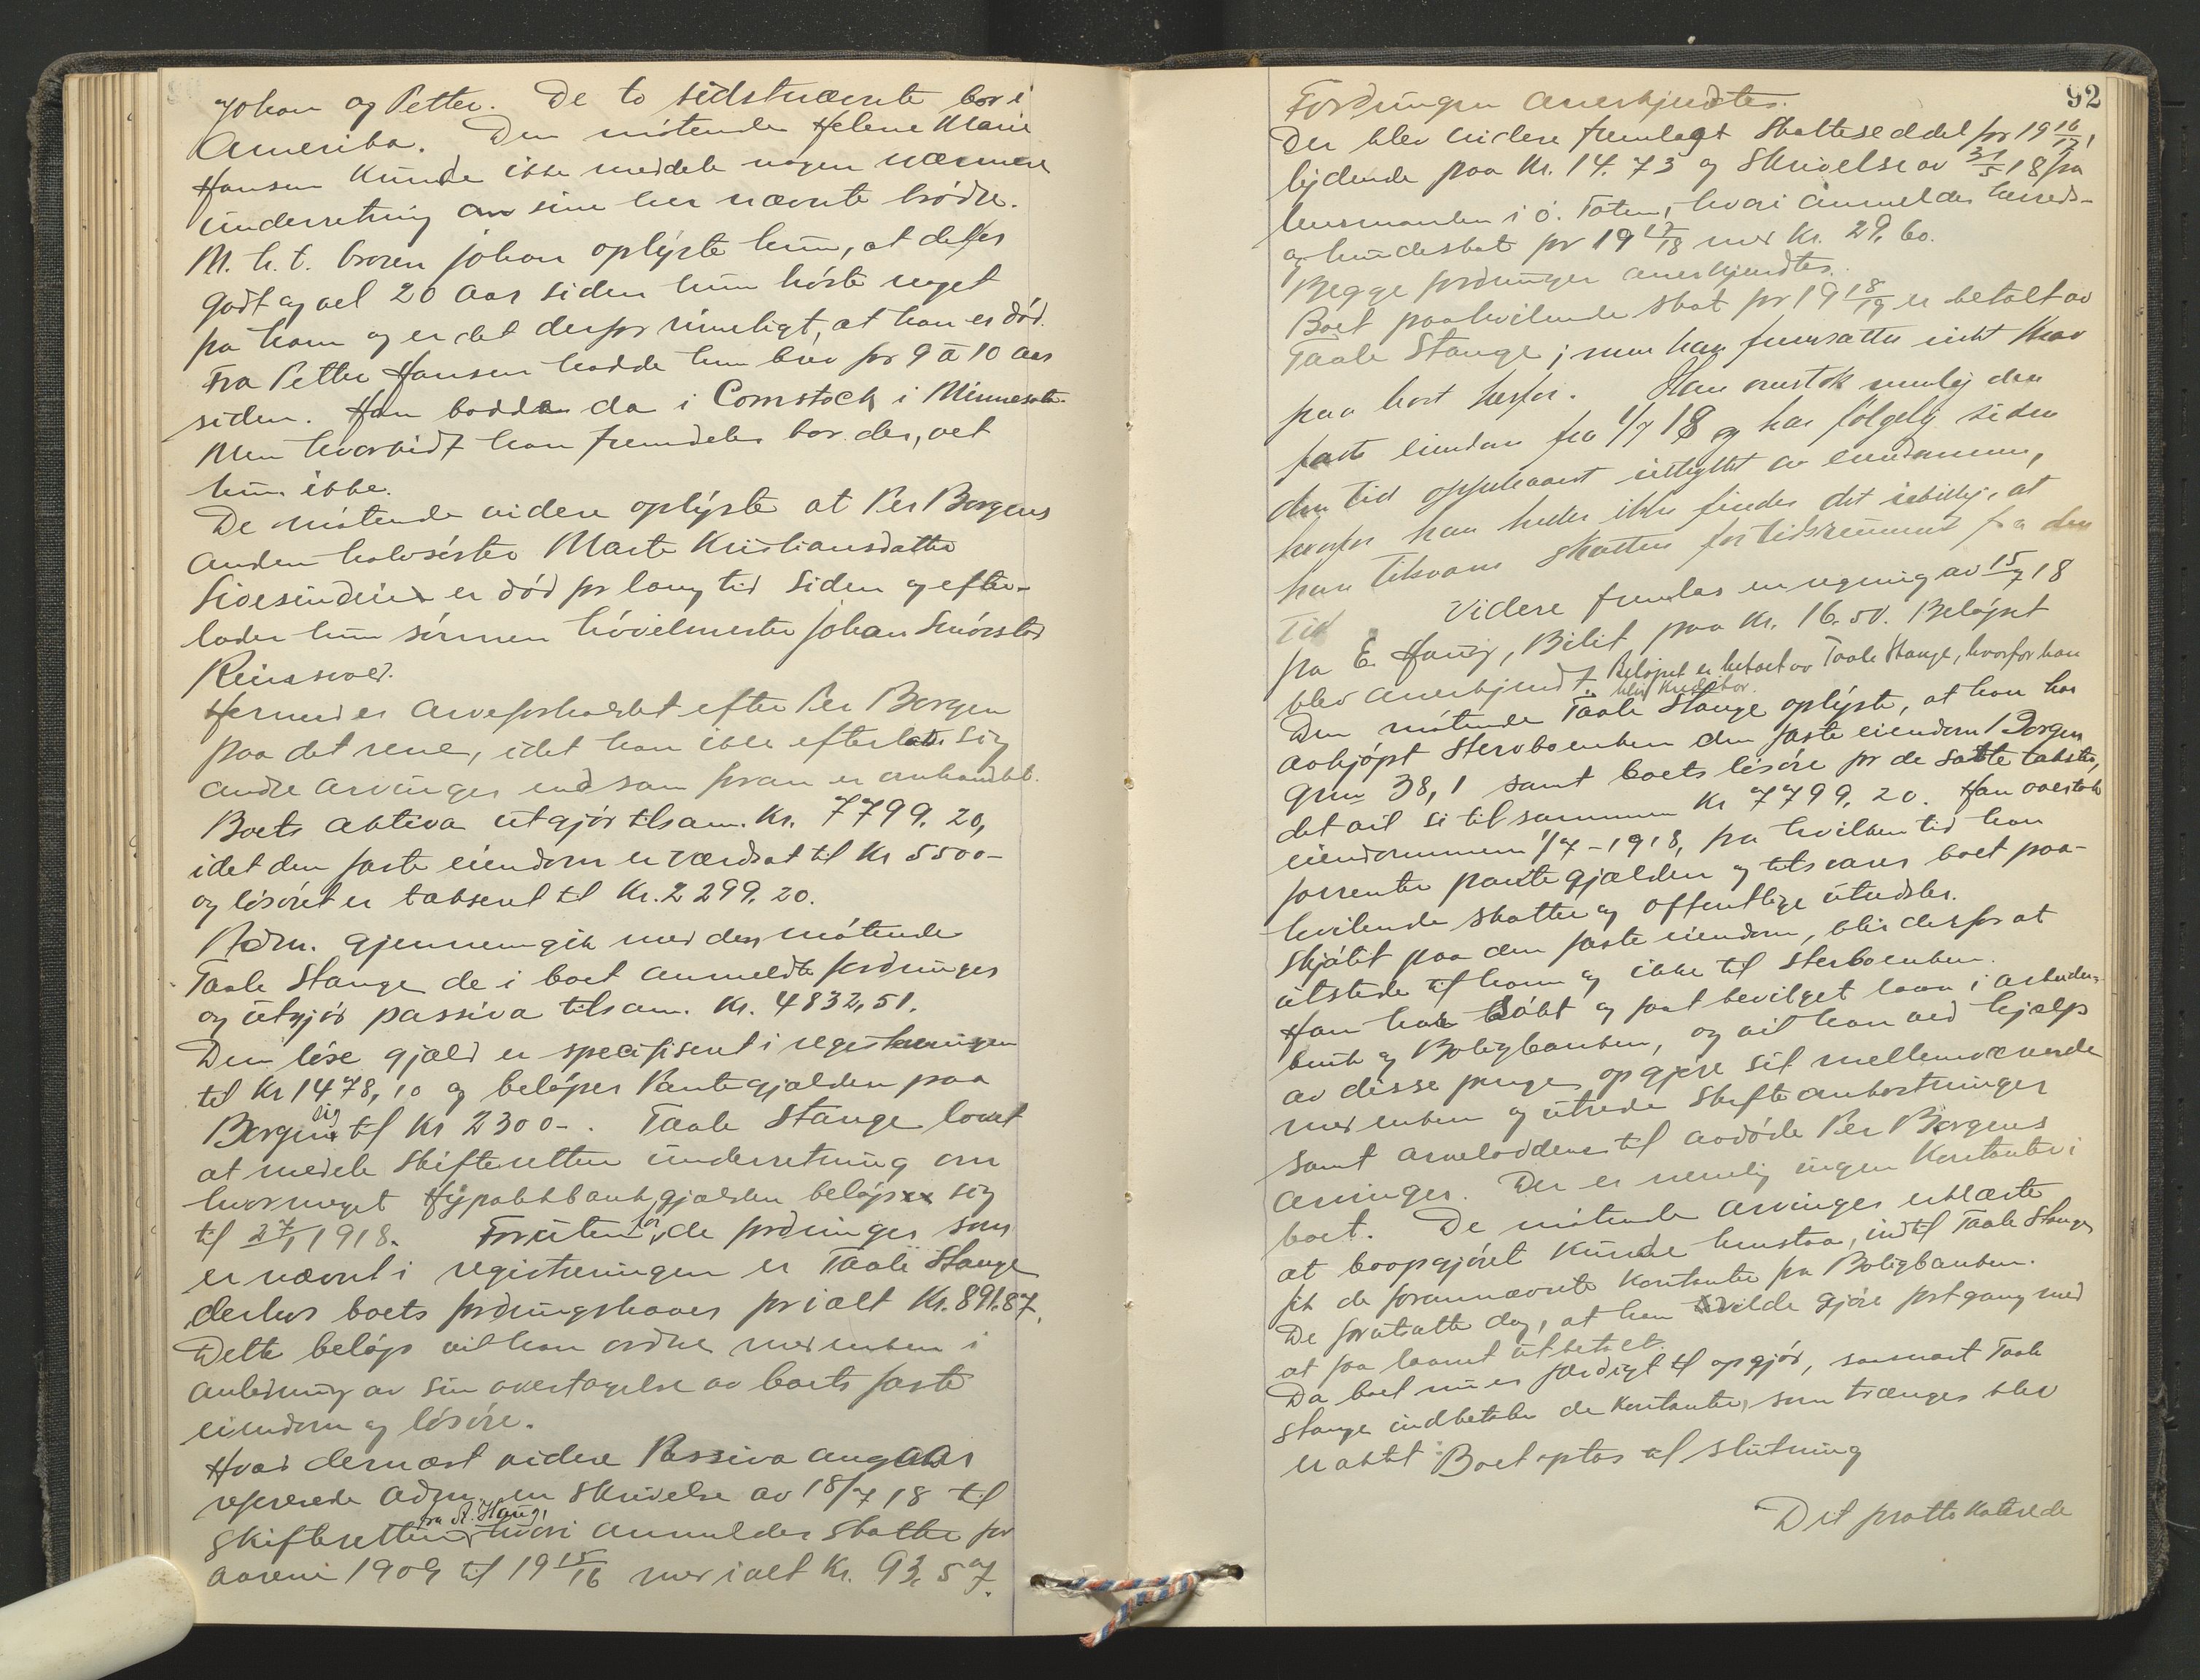 Johan og Petter. De to sidstnævnte bor i
Amerika. Den møtende Helene Marie
Hansen kunde ikke meddele nogen nærmere
underretning om sine her nævnte brødre.
M. h. t. broren Johan oplyste hun, at det er
godt og vel 20 aar siden hun hørte noget
fra ham og er det derfor rimeligt, at han er død.
Fra Petter Hansen hadde hun brev for 9 à 10 aar
siden. Han bodde da i Comstock i Minnesota.
Men hvorvidt han fremdeles bor der, vet
hun ikke.
De møtende videre oplyste at Per Borgens
anden halvsøster Marte Kristiansdatter
er død for lang tid siden og efter-
lader hun sønnen høvelmester Johan
Reinsvold.
Hermed er arveforholdet efter Per Borgen
paa det rene, idet han ikke efterlater sig
andre arvinger end som foran er omhandlet.
Boets aktiva utgjør tilsam. Kr. 7799. 20,
idet den faste eiendom er værdsat til Kr 5500-
og løsøret er taksert til Kr. 2299. 20.
Adm. gjennemgik med den møtende
Taale Stange de i boet anmeldte fordringer
og utgjør passiva tilsam. Kr. 4832,51.
Den løse gjæld er specifisert i registreringen
til Kr 1478,10 og beløper Pantegjælden paa
Borgen sig til Kr 2300-. Taale Stange lovet
at meddele skifteretten underretning om
hvormeget Hypotekbankgjælden beløp sig
til 27/1 1918. Foruten for de fordringer som
er nævnt i registreringen er Taale Stange
derhos boets fordringshaver for ialt Kr. 891.87.
Dette beløp vil han ordne med enken i
anledning av sin overtagelse av boets faste
eiendom og løsøre.
Hvad dernæst videre Passiva angaar
refererede adm. en skrivelse av 18/7 18 til
skifteretten fra A. Haug, hvori anmeldes skatter for
aarene 1909 til 19 15/16 med ialt Kr. 93,57.
92
Fordringen anerkjendtes.
Der blev videre fremlagt Skatteseddel for 19 16/17,
lydende paa Kr. 14. 73 og Skrivelse av 31/5 18 fra
lensmanden i Ø. Toten, hvori anmeldes herreds-
og hundeskat for 19 17/18 med Kr. 29. 60.
Begge fordringer anerkjendtes.
Boet paahvilende skat for 19 18/19 er betalt av
Taale Stange; men han fremsatte intet krav
paa boet herfor. Han overtok nemlig den
faste eiendom fra 1/7 18 og har følgelig siden
den tid oppebaaret utbyttet av eiendommen,
hvorfor han heller ikke finder det ubillig, at
han tilsvarer skatten for tidsrummet fra den
tid Videre fremlas en regning av 15/7 18
fra E. Haug, Bilit paa Kr. 16. 50. Beløpet
blev anerkjendt. Beløpet er betalt av Taale Stange, hvorfor han
blir kreditor.
Den møtende Taale Stange oplyste, at han har
avkjøpt Stervboenken den faste eiendom Borgen
Grnr. 38,1 samt boets løsøre for de satte takster,
det vil si tilsammen Kr 7799. 20. Han overtok
eiendommen 1/7 - 1918, fra hvilken tid han
forrenter pantegjælden og tilsvarer boet paa-
hvilende skatter og offentlige utredsler.
Skjøtet paa den faste eiendom, blir derfor at
utstede til ham og ikke til Sterboenken.
Han har søkt og faat bevilget laan i Arbeider-
bruk og Boligbanken, og vil han ved hjælp
av disse penge opgjøre sit mellemværende
med enken og utrede skifteomkostninger
samt arvelodden til avdøde Per Borgens
arvinger. Der er nemlig ingen Kontanter i
boet. De møtende arvinger erklærte
at boopgjøret kunde henstaa, indtil Taale Stange
fik de forannævnte kontanter fra Boligbanken.
De forutsatte dog, at han vilde gjøre fortgang med
at faa laanet utbetalt.
Da boet nu er færdigt til opgjør, saasnart Taale
Stange indbetaler de kontanter, som trænges blev
erakt: Boet optas til slutning
Det protokolerede